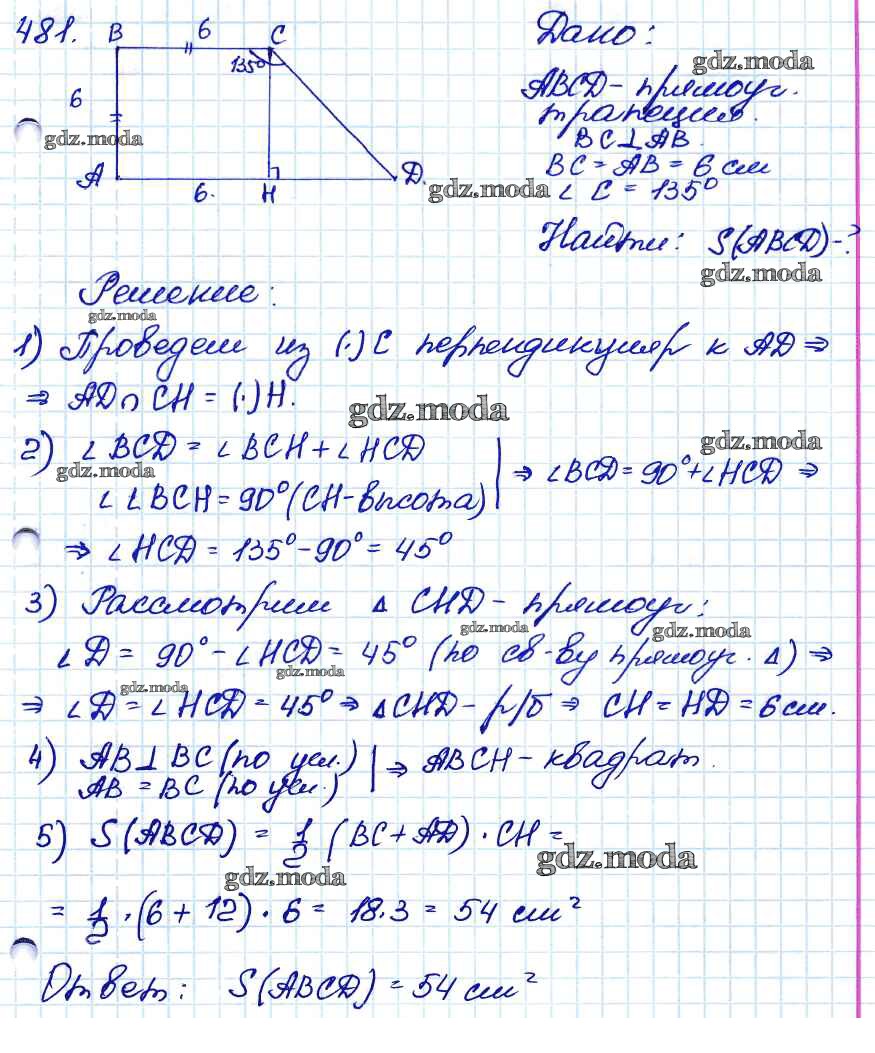 481. B 6 C
135°
6
A 6. H D.
Дано:
ABCD - прямоуг.
трапеция.
BC⊥AB.
BC = AB = 6 см
∠ C = 135°
Найти: S(ABCD) - ?
Решение:
1) Проведем из (·) C перпендикуляр к AD ⇒
⇒ AD ∩ CH = (·) H.
2) ∠ BCD = ∠ BCH + ∠ HCD
∠ ∠ BCH = 90° (CH - высота)
⇒ ∠BCD = 90° + ∠HCD ⇒
⇒ ∠ HCD = 135° - 90° = 45°
3) Рассмотрим Δ CHD - прямоуг:
∠ D = 90° - ∠HCD = 45° (по св-ву прямоуг. Δ) ⇒
⇒ ∠ D = ∠ HCD = 45° ⇒ ΔCHD - р/б ⇒ CH = HD = 6 см.
4) AB ⊥ BC (по усл.)
AB = BC (по усл.)
⇒ ABCH - квадрат.
5) S(ABCD) = 1/2 (BC + AD) · CH =
= 1/2 · (6 + 12) · 6 = 18·3 = 54 см²
Ответ: S(ABCD) = 54 см²
gdz.moda
gdz.moda
gdz.moda
gdz.moda
gdz.moda
gdz.moda
gdz.moda
gdz.moda
gdz.moda
gdz.moda
gdz.moda
gdz.moda
gdz.moda
gdz.moda